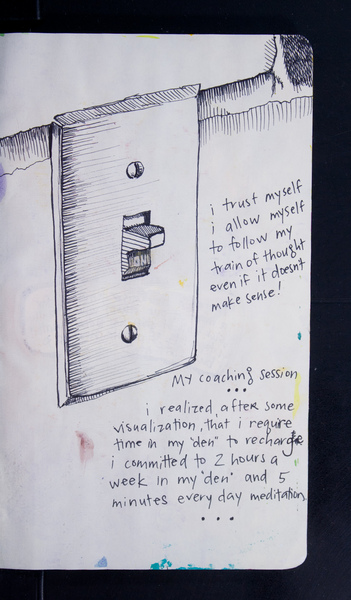 i trust myself
i allow myself
to follow my
train of thought
even if it doesn't
make sense!
MY coaching session
...
i realized, after some
visualization, that i require
time in my "den" to recharge
i committed to 2 hours a
week in my "den" and 5
minutes every day meditation
...